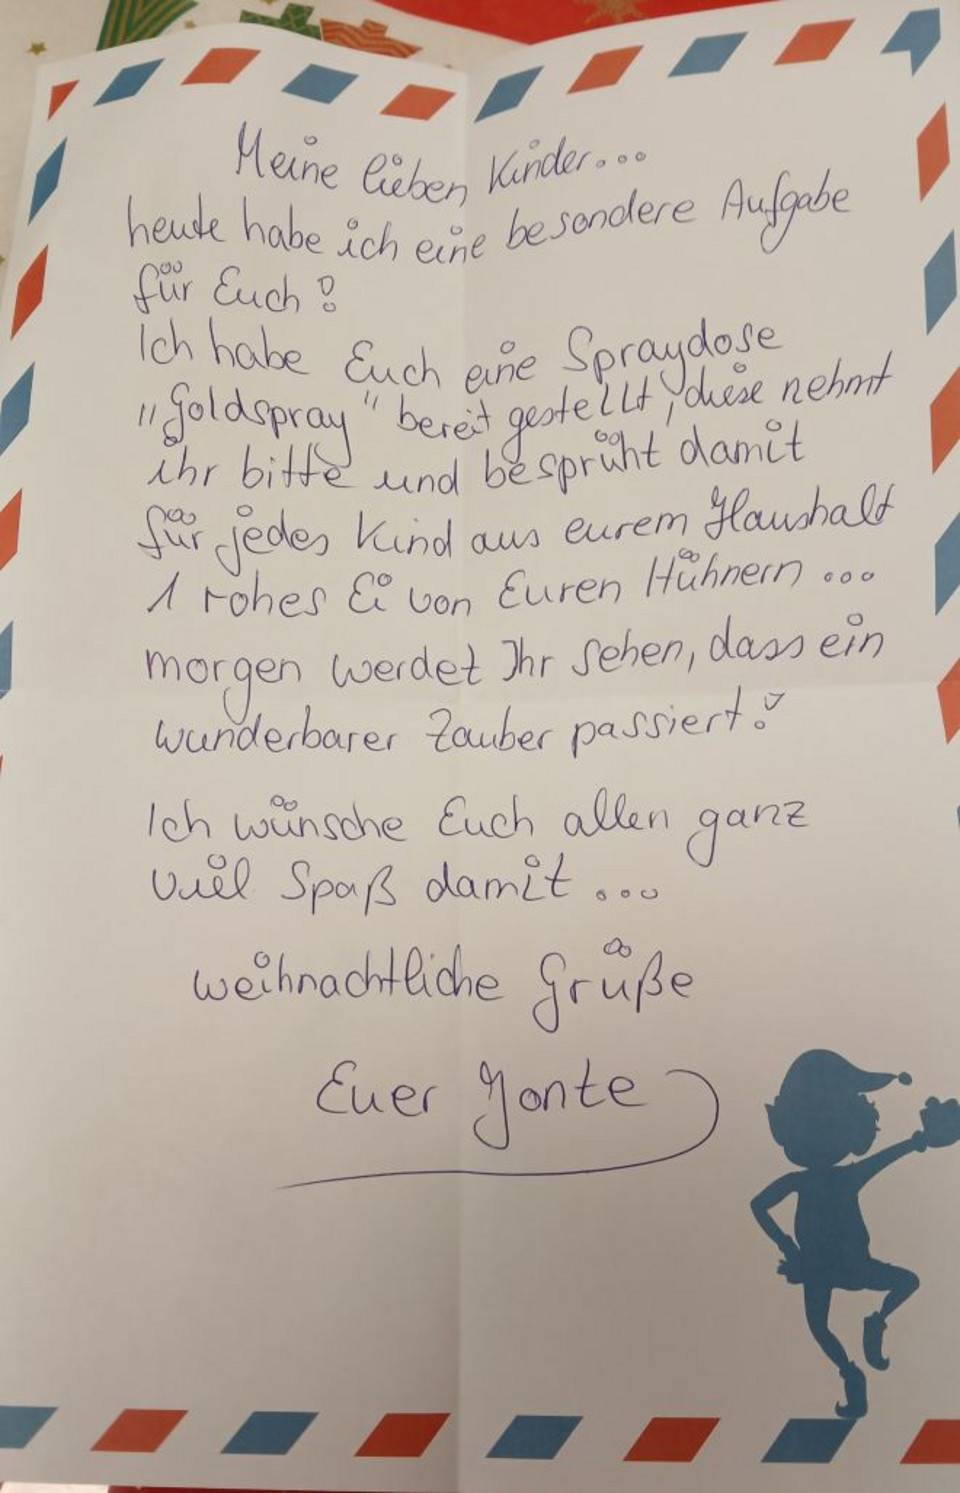 Meine lieben Kinder...
heute habe ich eine besondere Aufgabe
für Euch!
Ich habe Euch eine Spraydose
"Goldspray" bereit gestellt, diese nehmt
ihr bitte und besprüht damit
für jedes Kind aus eurem Haushalt
1 rohes Ei von Euren Hühnern...
morgen werdet Ihr sehen, dass ein
wunderbarer Zauber passiert!
Ich wünsche Euch allen ganz
viel Spaß damit...
weihnachtliche Grüße
Euer Jonte